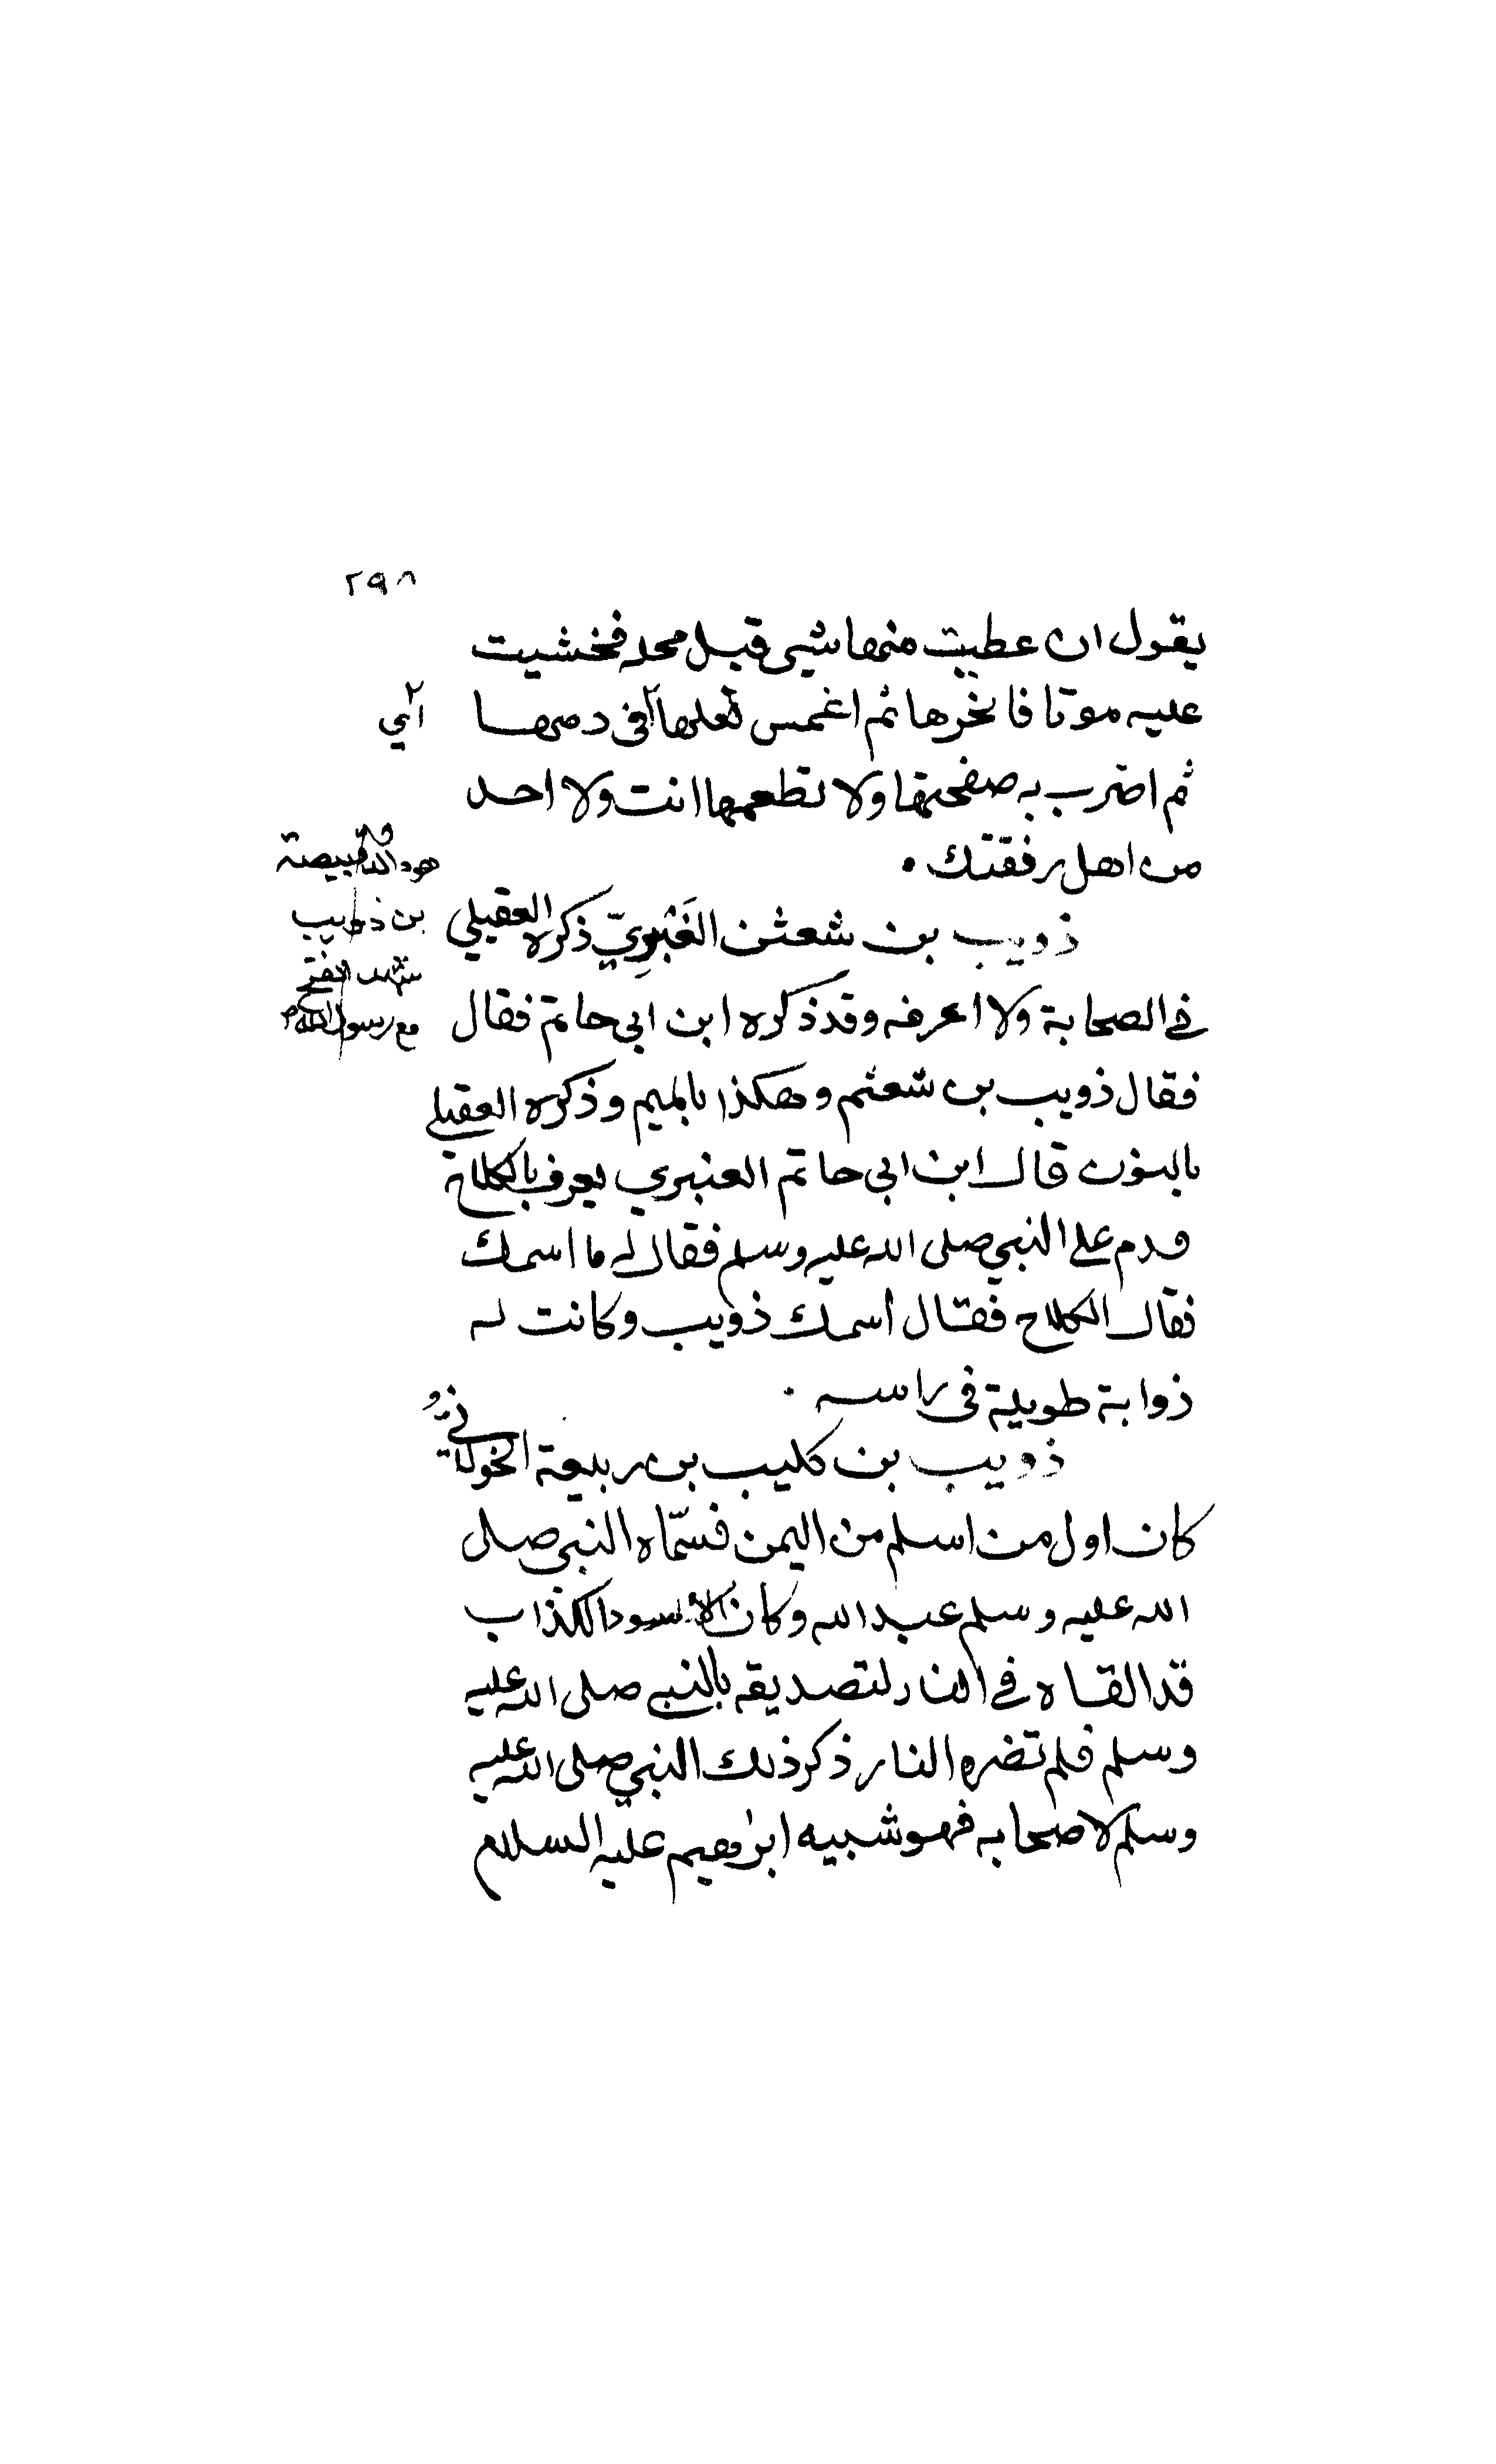 ٢٩٨
يقول ان عطبت منها شي قبل محله فخشيت
عليه موتا فانحرها ثم اغمس نعلها في دمها
اي
ثم اضرب به صفحتها ولا تطعمها انت ولا احد
من اهل رفقتك .
هو والد قبيصة
بن ذويب
شهد الفتح
مع رسول الله
ذويب بن شعثن العَنْبِرِيّ ذكره العقيلي
في الصحابة ولا اعرفه وقد ذكره ابن ابي حاتم فقال
فقال ذويب بن شعثم وهكذا بالميم وذكره العقيلي
بالنون قال ابن ابي حاتم العنبري يعرف بالكلاح
قدم على النبي صلى الله عليه وسلم فقال له ما اسمك
فقال الكلاح فقال اسمك ذويب وكانت له
ذوابة طويلة في راسه .
ذويب بن كليب بن ربيعة الخولاني
كان اول من اسلم من اليمن فسمّاه النبي صلى
الله عليه وسلم عبد الله وكان الاسود الكذاب
قد القاه في النار لتصديقه بالنبي صلى الله عليه
وسلم فلم تضره النار ذكر ذلك النبي صلى الله عليه
وسلم لاصحابه فهو شبيه ابرهيم عليه السلام